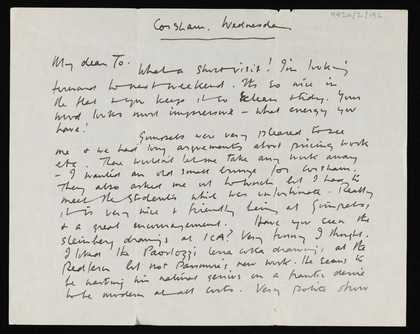 9420/2/192
Corsham. Wednesday
My dear To. What a short visit! I'm looking
forward to next weekend. It's so nice in
the flat & you keep it so clean & tidy. Your
mural looks most impressive – what energy you
have!
Gimpels were very pleased to see
me & we had long arguments about pricing work
etc. They wouldn't let me take any work away
– I wanted an old small bronze for Corsham.
They also asked me out to lunch but I had to
meet the students which was unfortunate. Really
it is very nice & friendly being at Gimpels,
& a great encouragement. Have you seen the
Steinberg drawings at ICA? Very funny I thought.
I liked the Paolozzi terra cotta drawings at the
Redfern but not Pasmore's new work. He seems to
be wasting his natural genius in a frantic desire
to be modern at all costs. Very polite show